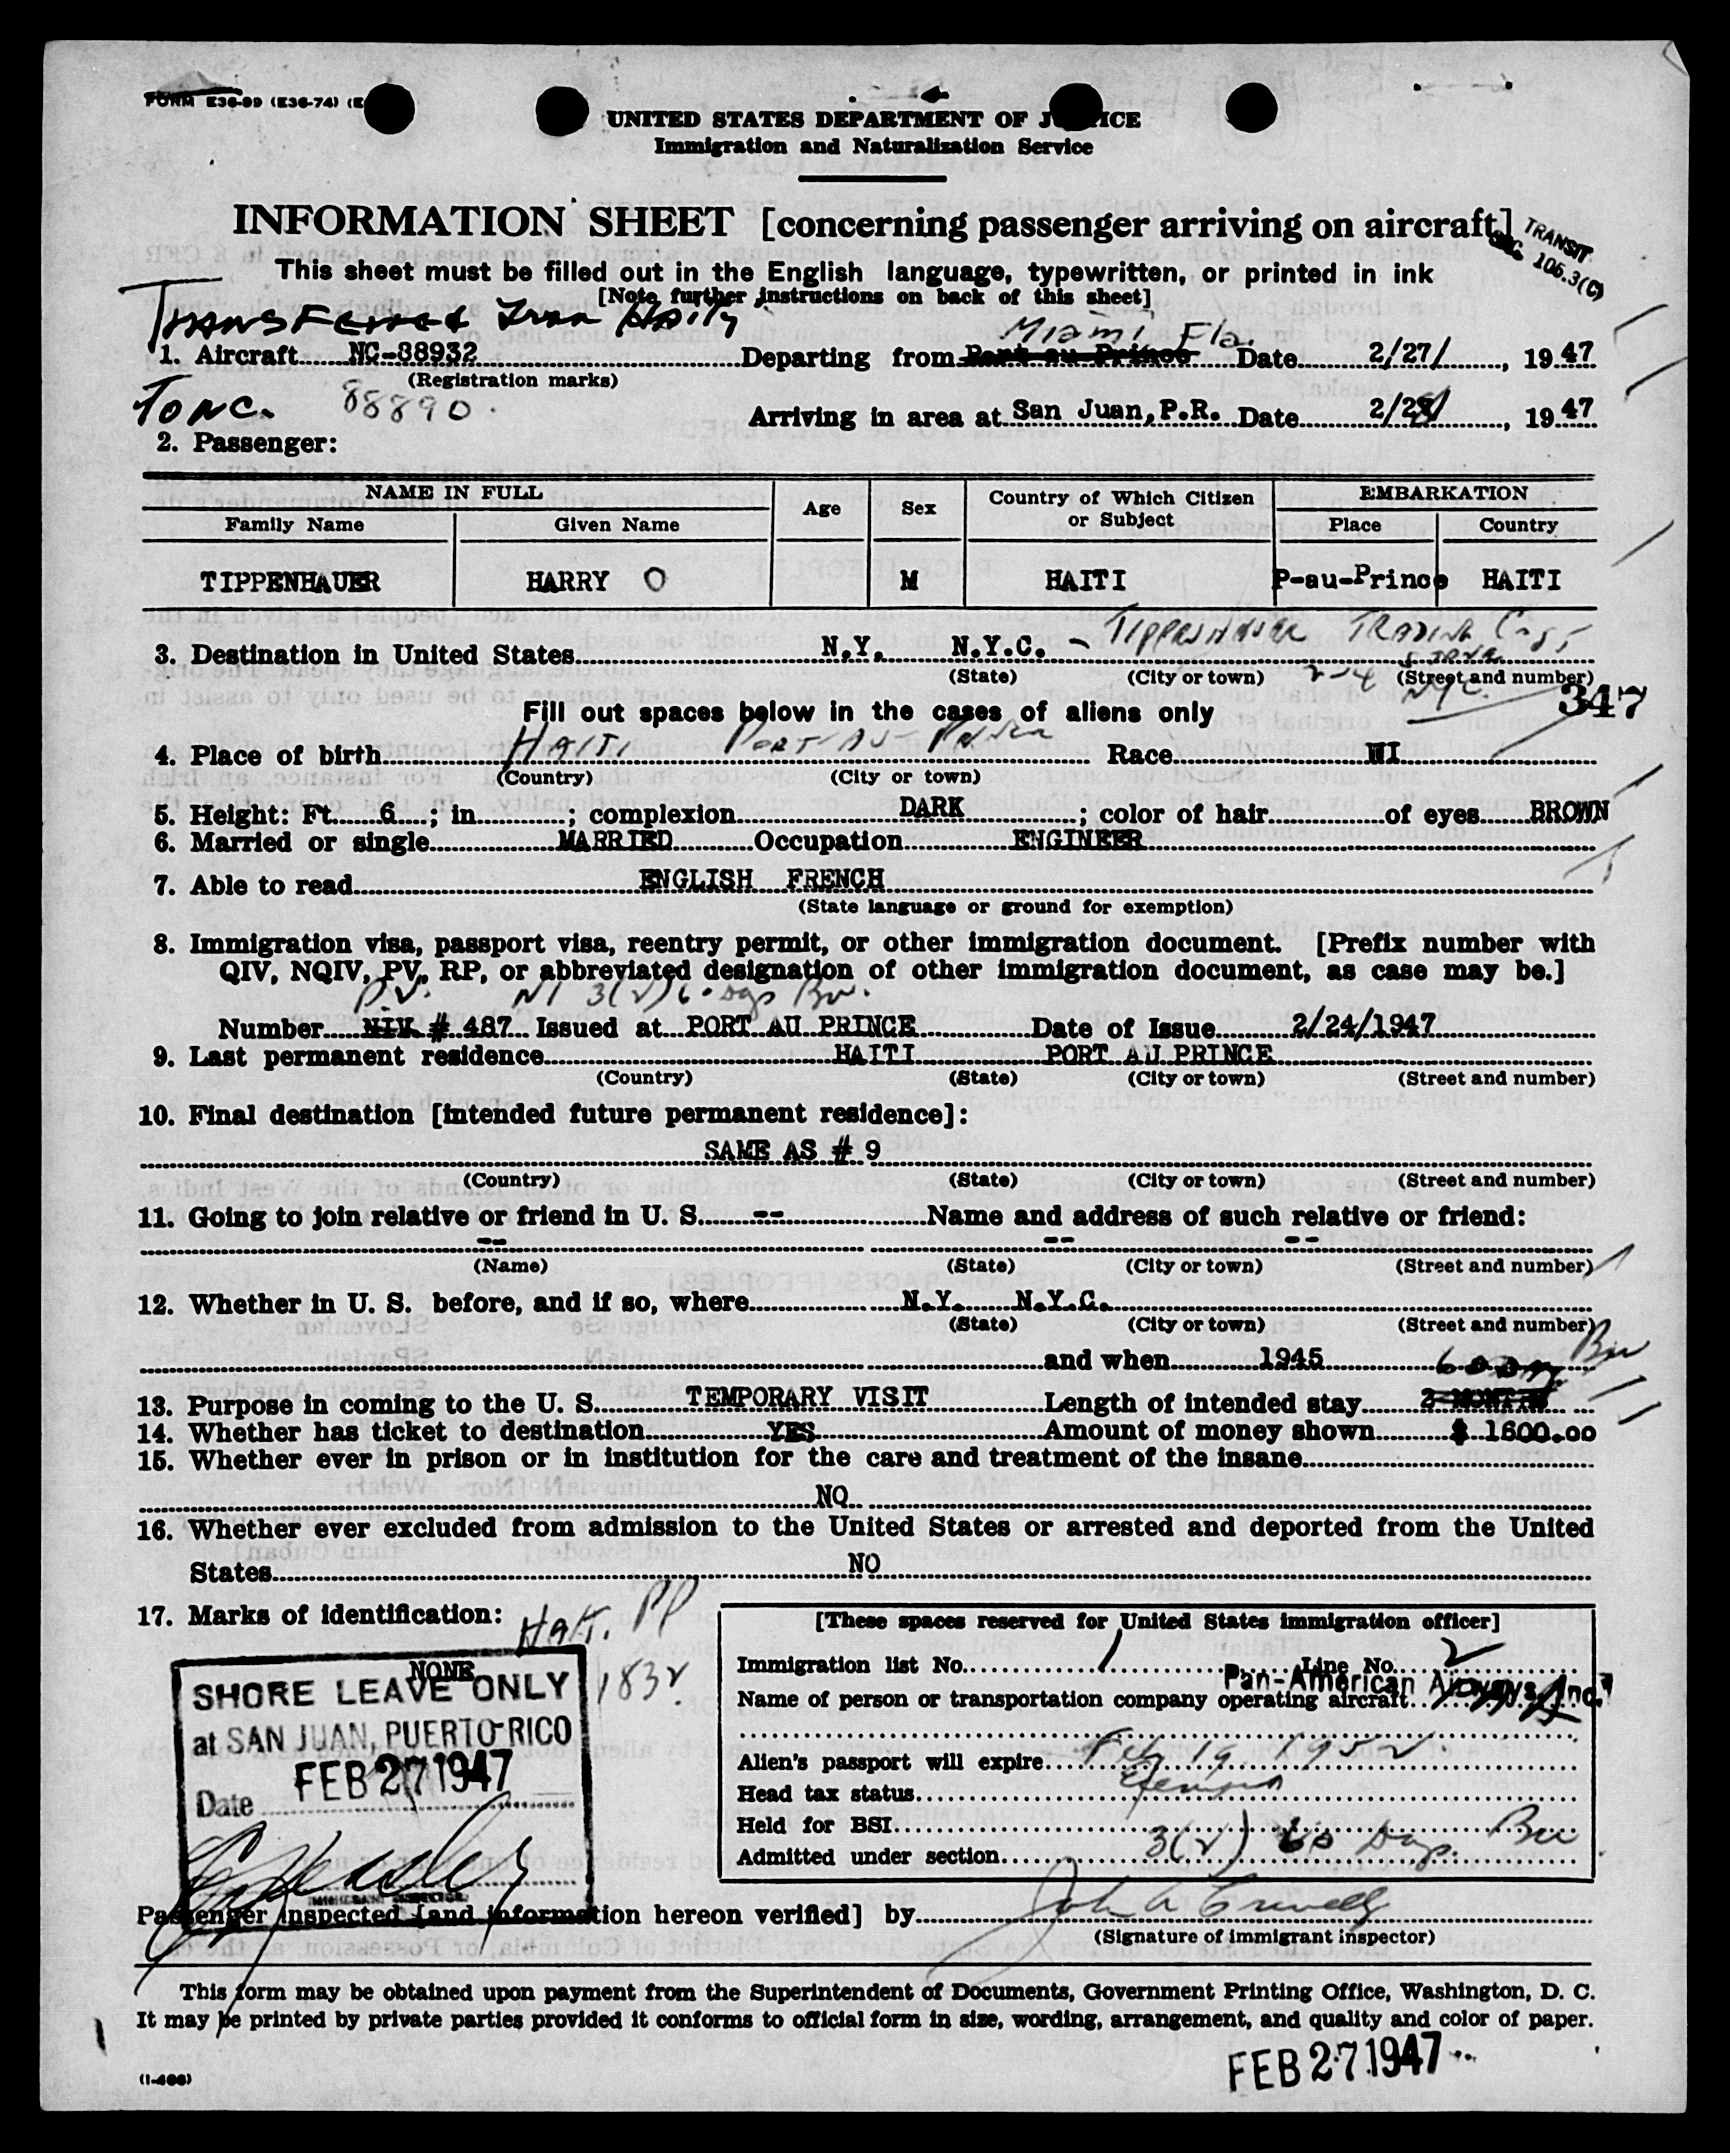 FORM E36-99 (E36-74) (E
UNITED STATES DEPARTMENT OF J ICE
Immigration and Naturalization Service
INFORMATION SHEET [concerning passenger arriving on aircraft]
TRANSIT
SEC. 106.3(C)
This sheet must be filled out in the English language, typewritten, or printed in ink
[Note further instructions on back of this sheet]
Transferred from Haity
Miami, Fla.
1. Aircraft NC-88932 Departing from Port au Prince Date 2/27/, 1947
(Registration marks)
To NC. 88890.
Arriving in area at San Juan, P.R. Date 2/28/, 1947
2. Passenger:
NAME IN FULL Age Sex Country of Which Citizen or Subject EMBARKATION
Family Name Given Name Place Country
TIPPENHAUER HARRY O M HAITI P-au-Prince HAITI
3. Destination in United States N.Y. N.Y.C. - Tippenhauer Trading
(State) (City or town) (Street and number)
2-4 NYC.
347
Fill out spaces below in the cases of aliens only
4. Place of birth HAITI PORT-AU-PRINCE Race WI
(Country) (City or town)
5. Height: Ft. 6; in. ; complexion DARK; color of hair of eyes BROWN
6. Married or single MARRIED Occupation ENGINEER
7. Able to read ENGLISH FRENCH
(State language or ground for exemption)
8. Immigration visa, passport visa, reentry permit, or other immigration document. [Prefix number with
QIV, NQIV, PV, RP, or abbreviated designation of other immigration document, as case may be.]
P.V. NI 3(2) 60 Dys Bu.
Number NIV # 487 Issued at PORT AU PRINCE Date of Issue 2/24/1947
9. Last permanent residence HAITI PORT AU PRINCE
(Country) (State) (City or town) (Street and number)
10. Final destination [intended future permanent residence]:
SAME AS # 9
(Country) (State) (City or town) (Street and number)
11. Going to join relative or friend in U. S. -- Name and address of such relative or friend:
-- -- --
(Name) (State) (City or town) (Street and number)
12. Whether in U. S. before, and if so, where N.Y. N.Y.C.
(State) (City or town) (Street and number)
and when 1945
60 Dys Bu
13. Purpose in coming to the U. S. TEMPORARY VISIT Length of intended stay 2 MONTHS
14. Whether has ticket to destination YES Amount of money shown $ 1600.00
15. Whether ever in prison or in institution for the care and treatment of the insane
NO
16. Whether ever excluded from admission to the United States or arrested and deported from the United
States NO
17. Marks of identification:
Hait. PP
1832
NONE
SHORE LEAVE ONLY
at SAN JUAN, PUERTO RICO
Date FEB 27 1947
IMMIGRANT INSPECTOR
[These spaces reserved for United States immigration officer]
Immigration list No. 1 Line No. 2
Pan-American Airways, Inc.
Name of person or transportation company operating aircraft
Alien's passport will expire Feb 19 1952.
Head tax status Exempt
Held for BSI
Admitted under section 3(2) 60 Days. Bu
Passenger inspected [and information hereon verified] by
(Signature of immigrant inspector)
This form may be obtained upon payment from the Superintendent of Documents, Government Printing Office, Washington, D. C.
It may be printed by private parties provided it conforms to official form in size, wording, arrangement, and quality and color of paper.
FEB 27 1947
(I-466)